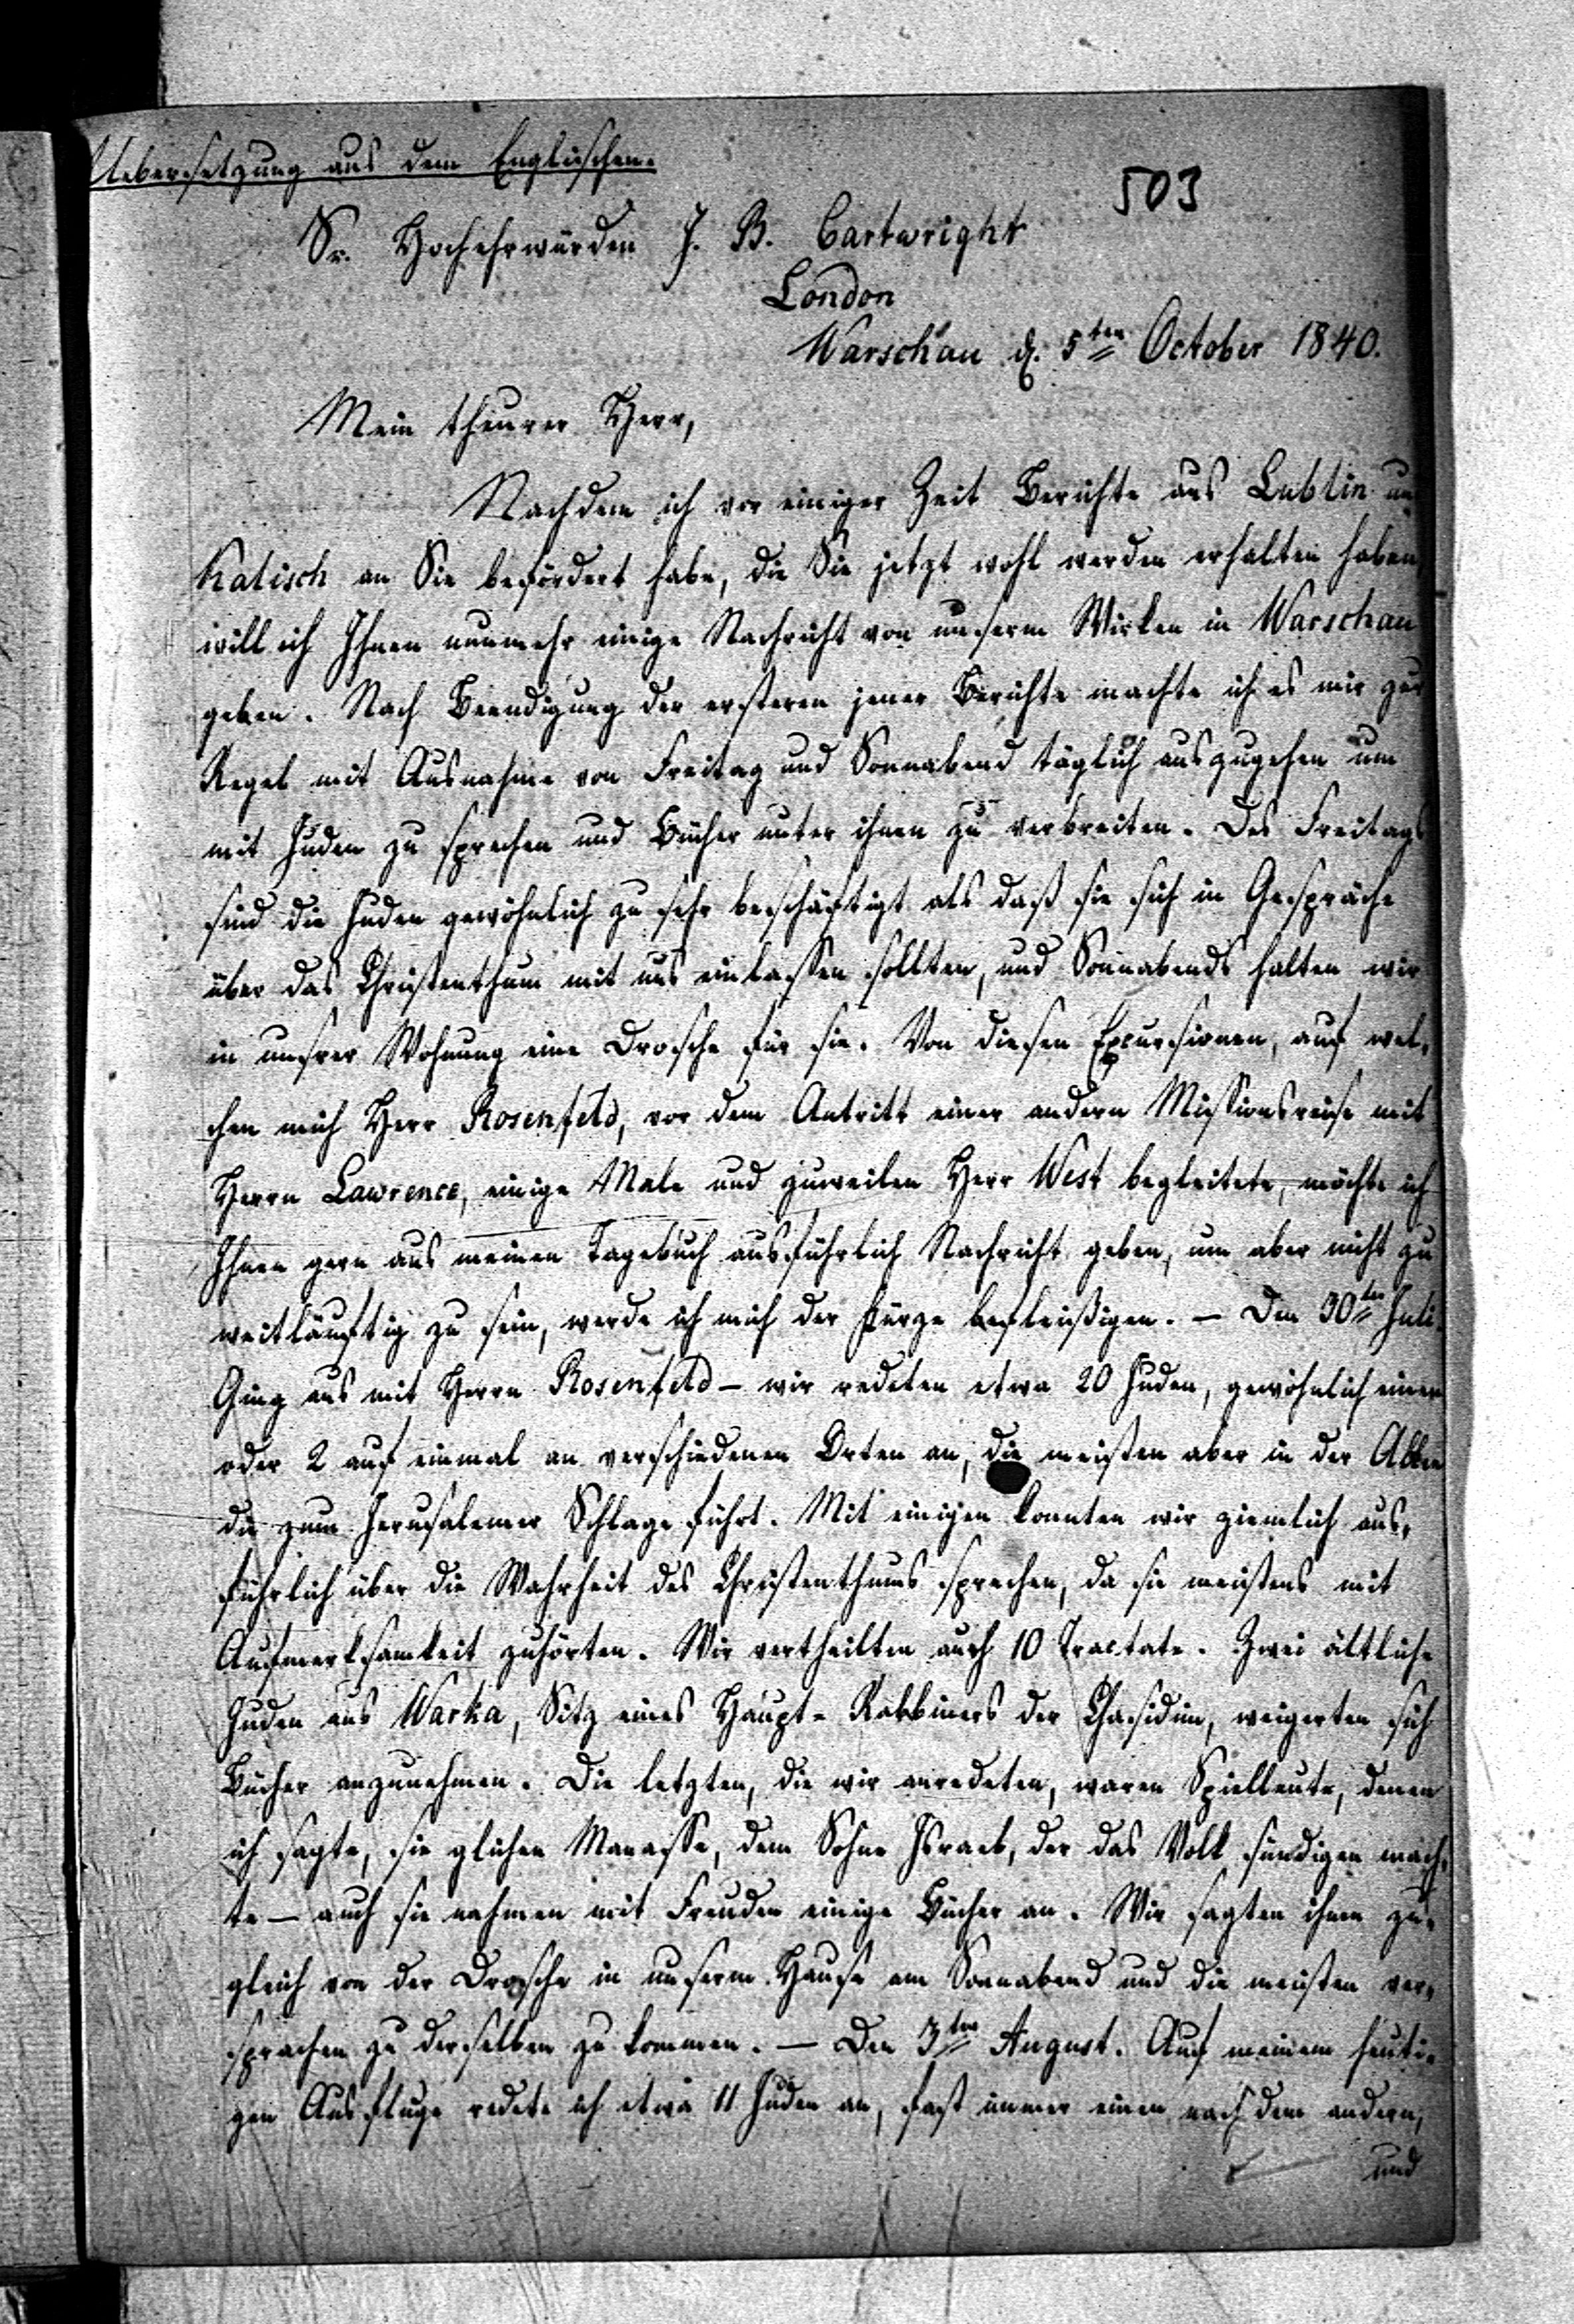 Uebersetzung aus dem Englischen.
503
Sr. Hochehrwürden J. B. Cartwright
London
Warschau d. 5ten October 1840.
Mein theurer Herr,
Nachdem ich vor einiger Zeit Berichte aus Lublin un
Kalisch an Sie befördert habe, die Sie jetzt wohl werden erhalten haben,
will ich Ihnen nunmehr einige Nachricht von unserm Wirken in Warschau
geben. Nach Beendigung der ersteren jener Berichte machte ich es mir zur
Regel mit Ausnahme von Freitag und Sonnabend täglich auszugehen um
mit Juden zu sprechen und Bücher unter ihnen zu verbreiten. Des Freitags
sind die Juden gewöhnlich zu sehr beschäftigt als daß sie sich in Gespräche
über das Christenthum mit uns einlassen sollten, und Sonnabends halten wir
in unsrer Wohnung eine Drosche für sie. Von diesen Excursionen, auf wel-
chen mich Herr Rosenfeld, vor dem Antritt einer andern Missionsreise mit
Herrn Lawrence, einige Male und zuweilen Herr West begleitete, möchte ich
Ihnen gern aus meinen Tagebuch ausführlich Nachricht geben, um aber nicht zu
weitläuftig zu sein, werde ich mich der Kürze befleißigen. — Den 30ten Juli.
Ging aus mit Herrn Rosenfeld — wir redeten etwa 20 Juden, gewöhnlich einen
oder 2 auf einmal an verschiedenen Orten an, die meisten aber in der Allee
die zum Jerusalemer Schlage führt. Mit einigen konnten wir ziemlich aus-
führlich über die Wahrheit des Christenthums sprechen, da sie meistens mit
Aufmerksamkeit zuhörten. Wir vertheilten auch 10 Tractate. Zwei ältliche
Juden aus Warka, Sitz eines Haupt-Rabbiners der Chasidim, weigerten sich
Bücher anzunehmen. Die letzten, die wir anredeten, waren Spielleute, denen
ich sagte, sie glichen Manasse, dem Sohne Israels, der das Volk sündigen mach-
te — auch sie nahmen mit Freuden einige Bücher an. Wir sagten ihnen zu-
gleich von der Drosche in unserm Hause am Sonnabend und die meisten ver-
sprachen zu derselben zu kommen. — Den 3ten August. Auf meinem heuti-
gen Ausfluge redete ich etwa 11 Juden an, fast immer einen nach dem andern,
und